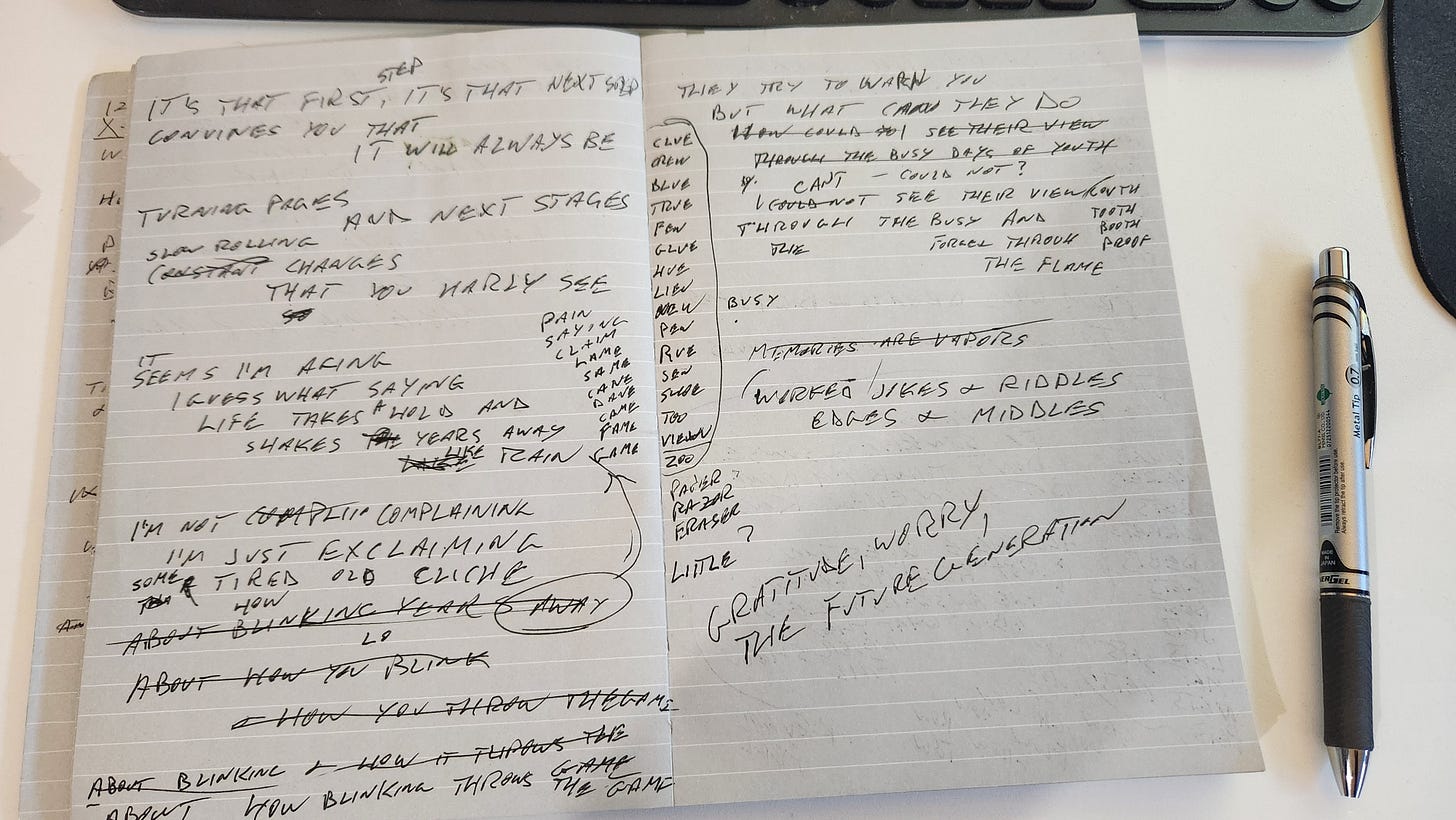 STEP
IT'S THAT FIRST, IT'S THAT NEXT
CONVINES YOU THAT
IT WILL ALWAYS BE
TURNING PAGES
AND NEXT STAGES
SLOW ROLLING
CONSTANT CHANGES
THAT YOU HARLY SEE
SO
IT
SEEMS I'M AGING
I GUESS WHAT SAYING
LIFE TAKES A HOLD AND
SHAKES THE YEARS AWAY
LIKE RAIN
PAIN
SAYING
CLAIM
LAME
SAME
CANE
DANE
CAME
FAME
GAME
I'M NOT COMPLAINING
I'M JUST EXCLAIMING
SOME TIRED OLD CLICHE
HOW
ABOUT BLINKING YEARS AWAY
LO
ABOUT HOW YOU BLINK
& HOW YOU THROW THE GAME
ABOUT BLINKING & HOW IT THROWS THE
GAME
ABOUT HOW BLINKING THROWS THE GAME
THEY TRY TO WARN YOU
BUT WHAT CAN THEY DO
HOW COULD I SEE THEIR VIEW
THROUGH THE BUSY DAYS OF YOUTH
CANT - COULD NOT?
I COULD NOT SEE THEIR VIEW
THROUGH THE BUSY AND
THE FORGEL THROUGH
THE FLAME
YOUTH
TOOTH
BOOTH
PROOF
CLUE
CREW
BLUE
TRUE
FEW
GLUE
HUE
LIEU
NEW
PEW
RUE
SEW
SUDE
TOO
VIEW
ZOO
PAPER?
RAZOR
ERASER
LITTLE?
BUSY
MEMORIES ARE VAPORS
WORKED JOKES & RIDDLES
EDGES & MIDDLES
GRATITUDE, WORRY,
THE FUTURE GENERATION
Metal Tip 0.7
MADE IN JAPAN
ERGEL